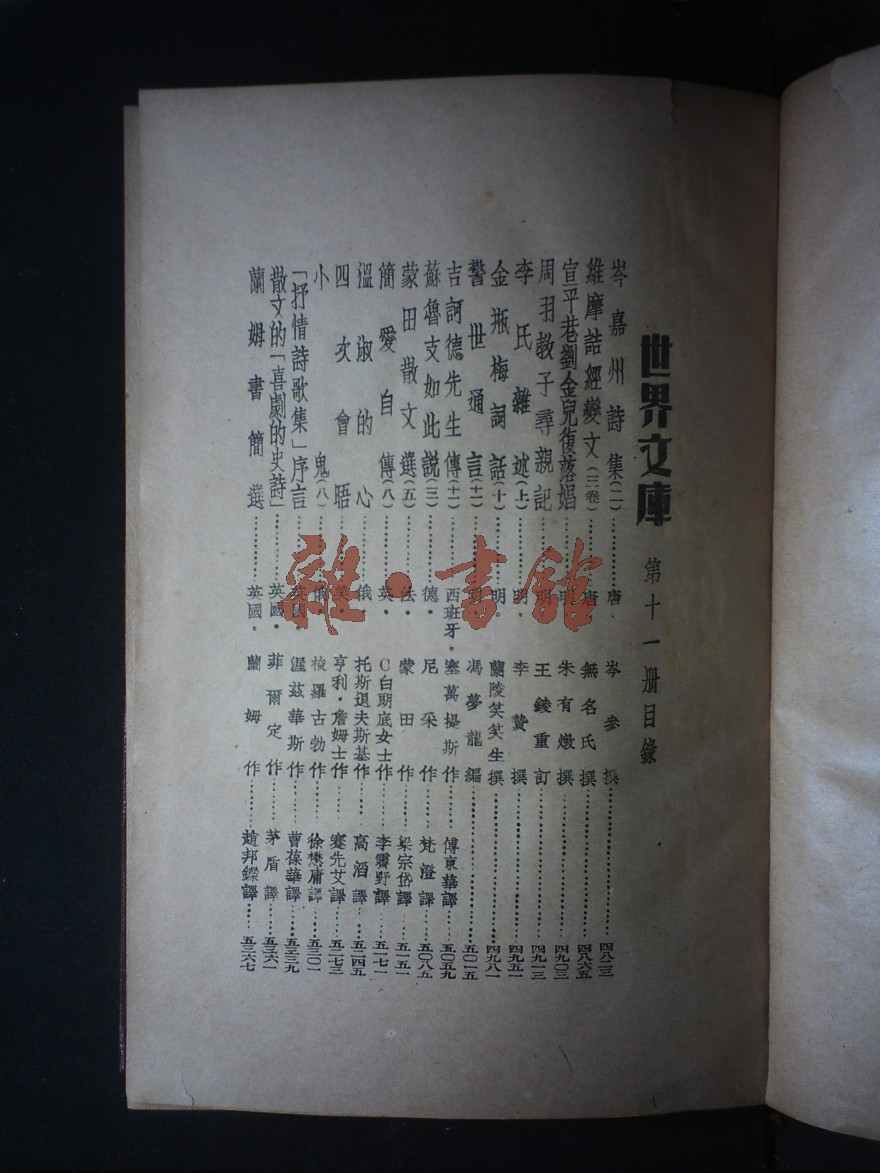 世界文庫 第十一册目錄
岑嘉州詩集(二)……唐·岑參撰……四八二三
維摩詰經變文(三卷)……唐·無名氏撰……四八六五
宣平巷劉金兒復落娼……明·朱有燉撰……四九〇三
周羽教子尋親記……明·王錂重訂……四九一三
李氏雜述(上)……明·李贄撰……四九五一
金瓶梅詞話(十)……明·蘭陵笑笑生撰……四九八一
警世通言(十一)……明·馮夢龍編……五〇一五
吉訶德先生傳(十一)……西班牙·塞萬提斯作……傅東華譯……五〇五九
蘇魯支如此説(三)……德·尼采作……梵澄譯……五〇八五
蒙田散文選(五)……法·蒙田作……梁宗岱譯……五一五一
簡愛自傳(八)……英·C白朗底女士作……李霽野譯……五一七一
溫淑的心……俄·托斯退夫斯基作……高滔譯……五二四五
四次會晤……美·亨利·詹姆士作……蹇先艾譯……五二七三
小鬼(八)……俄·梭羅古勃作……徐懋庸譯……五三〇一
「抒情詩歌集」序言……英國·渥茲華斯作……曹葆華譯……五三三九
散文的「喜劇的史詩」……英國·菲爾定作……茅盾譯……五三六一
蘭姆書簡選……英國·蘭姆作……趙邦鑅譯……五三六七
雜·書館